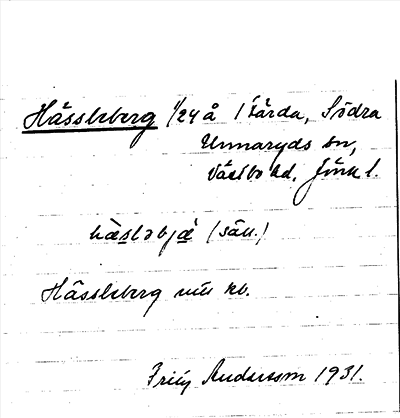 Hässleberg 1/24 å 1 Kärda, Södra
Unnaryds sn,
Västbo hd, Jönk l.
hæ̀sləbjæ̀ (sän.)
Hässleberg enl. kb.
Andersson 1931.